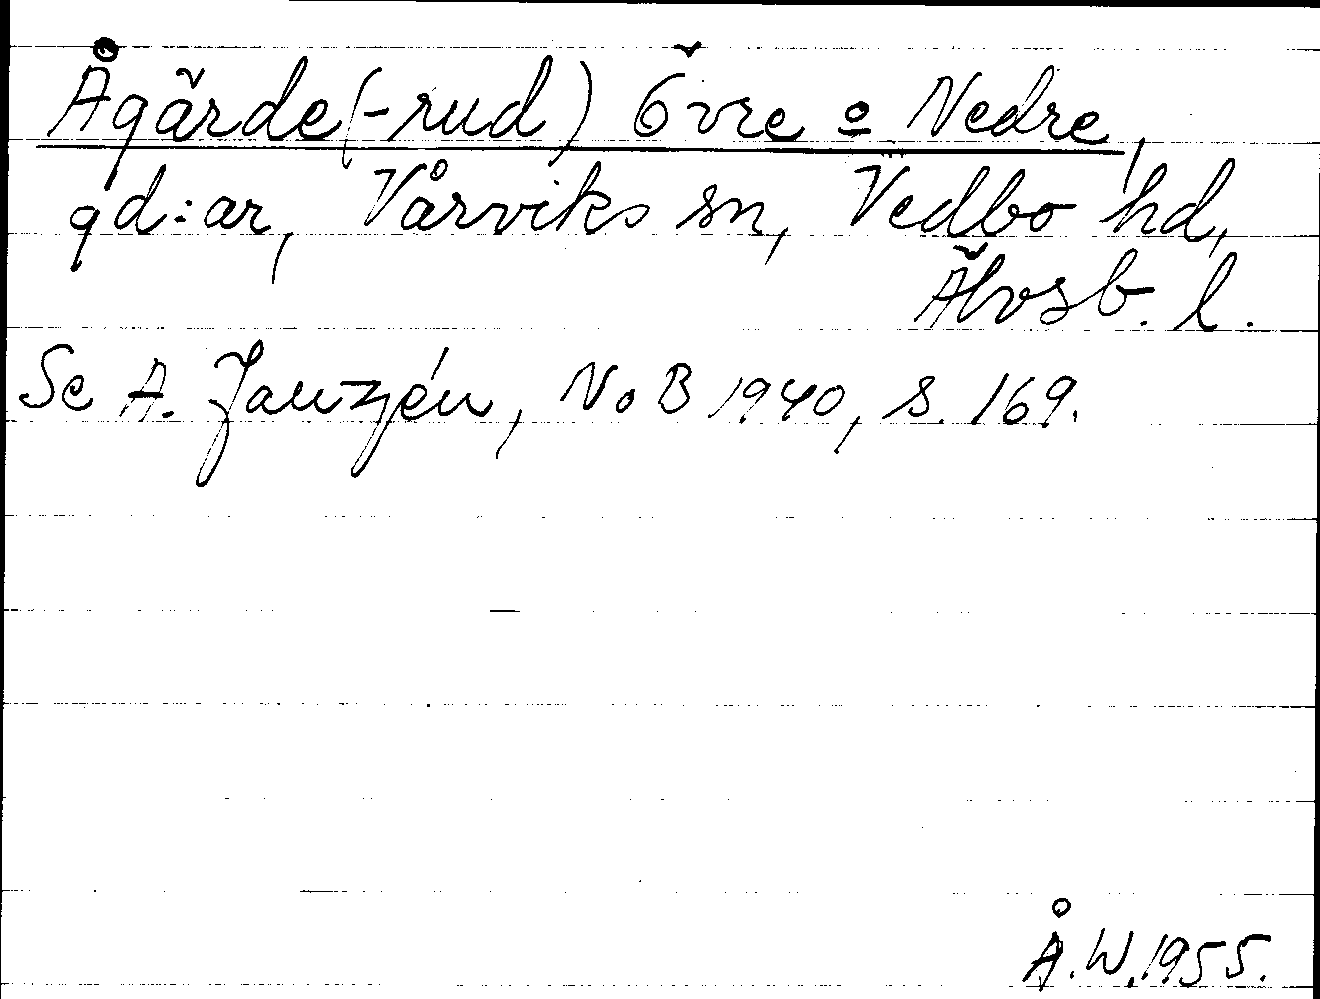 Ågärde(-rud) Övre o Nedre,
gd:ar, Vårviks sn, Vedbo hd,
Älvsb. l.
Se A. Janzén, NoB 1940, s. 169.
Å.W.1955.